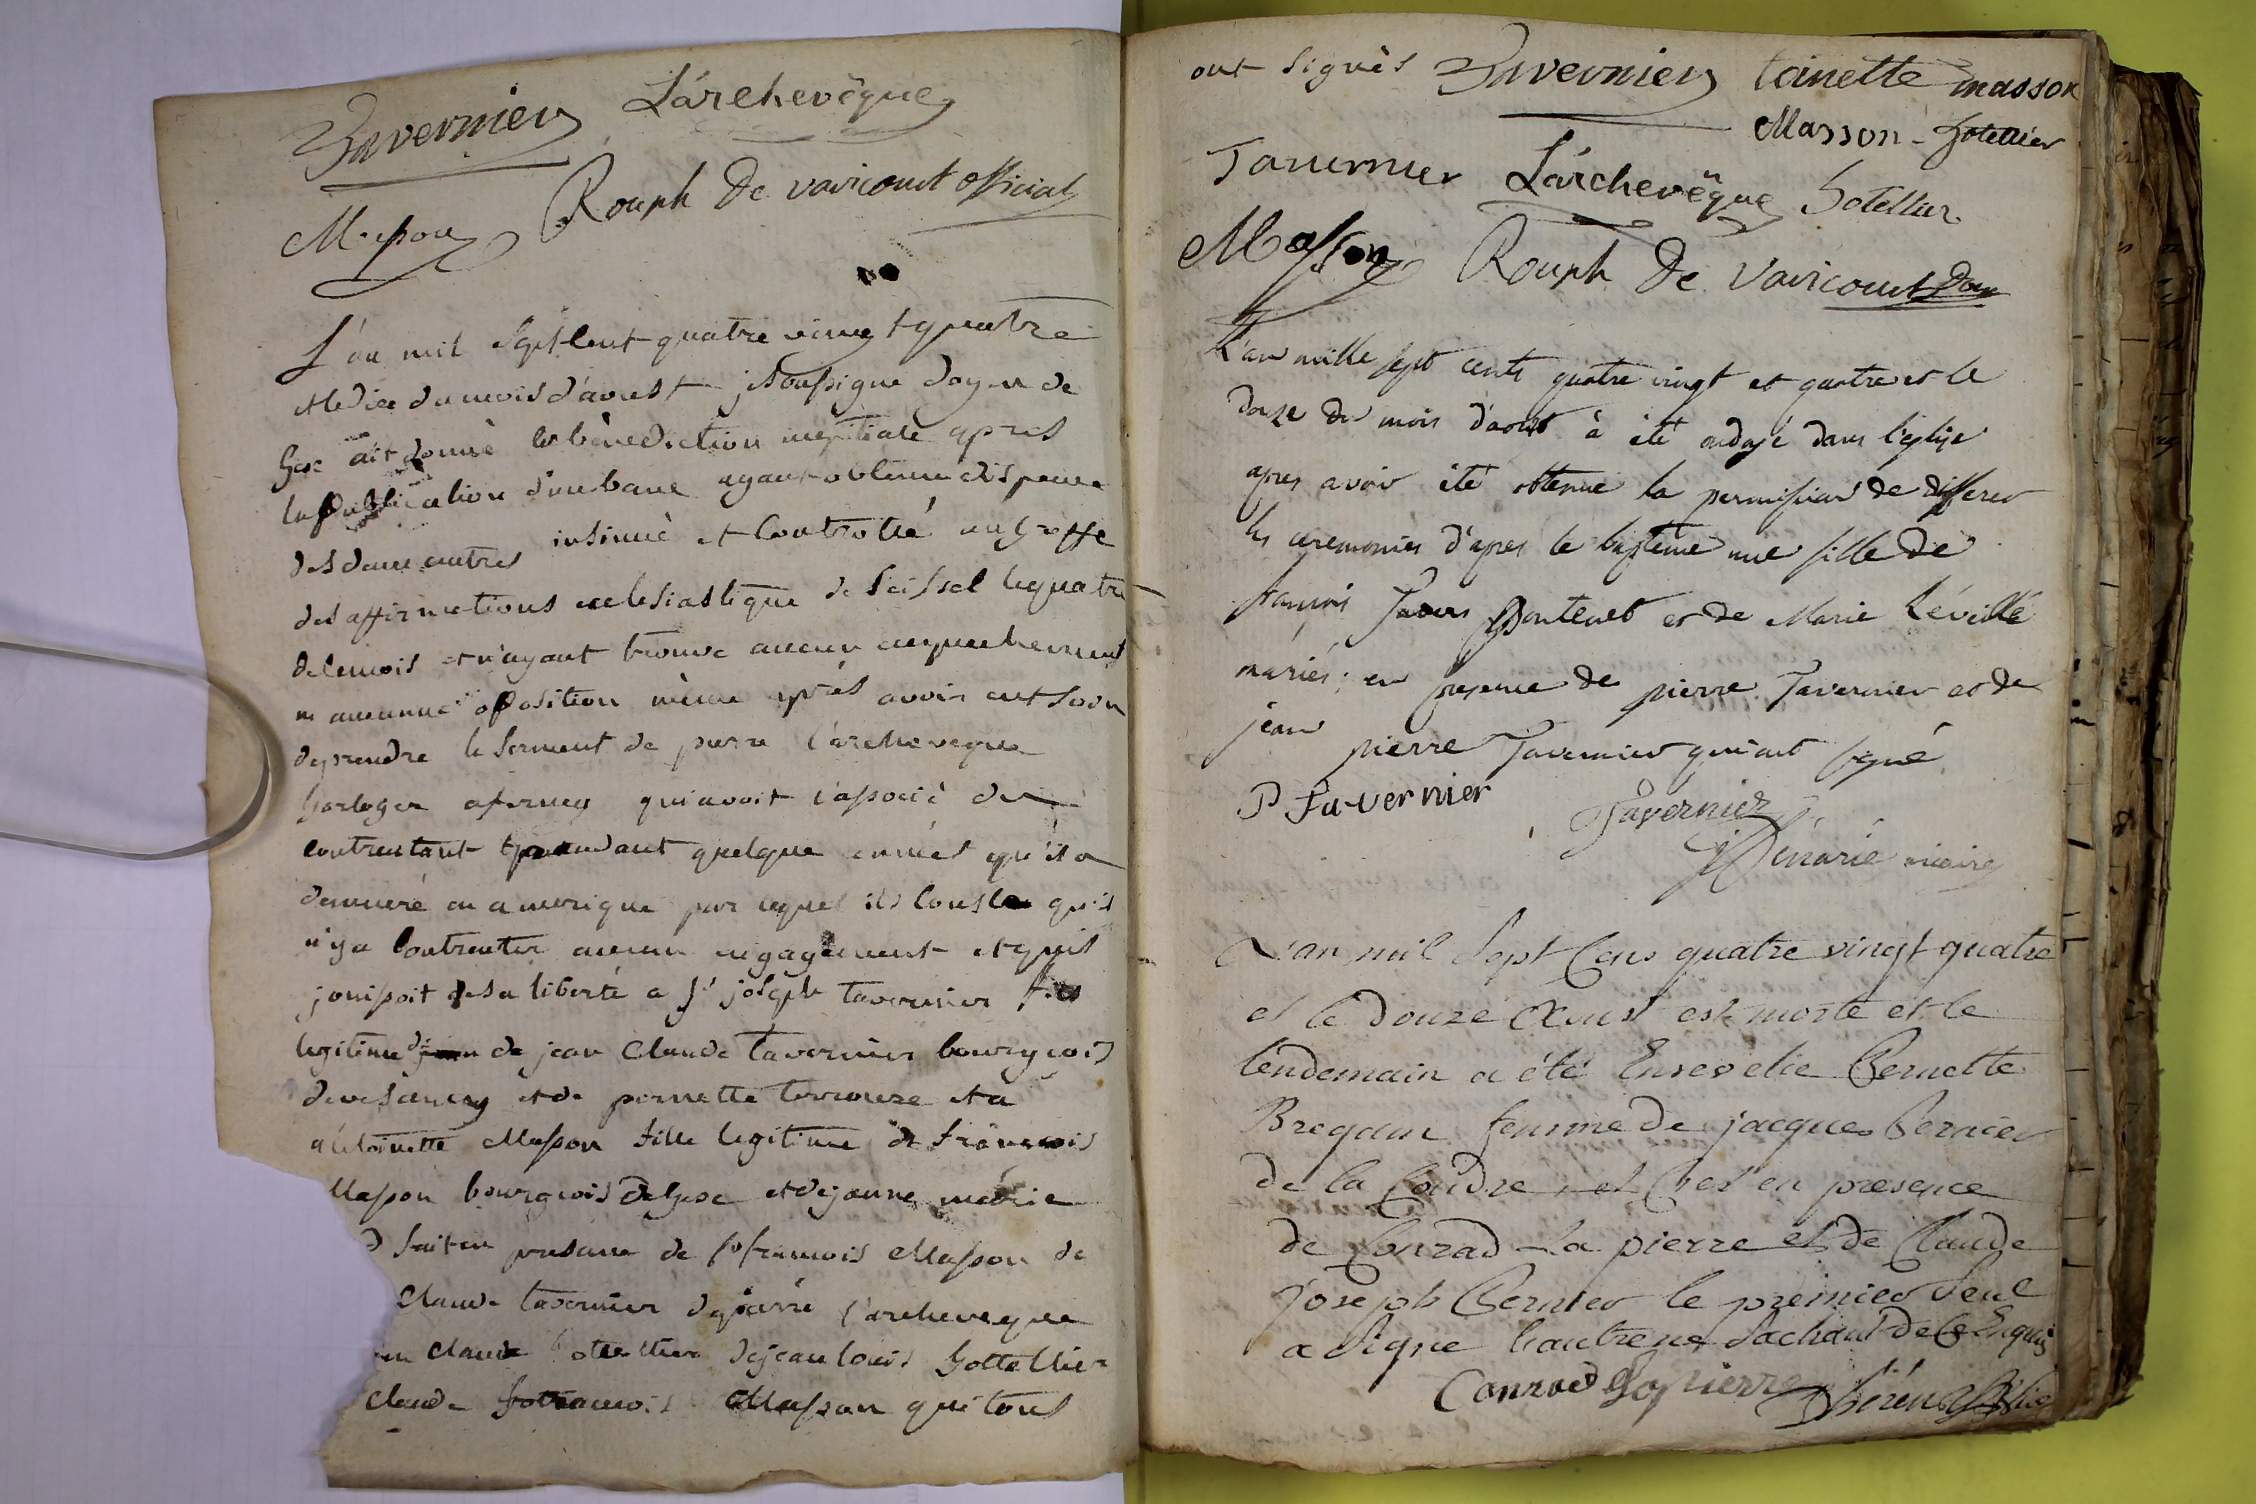 Tavernier L'archevêque
Masson Rouph de varicourt official
L'an mil sept cent quatre vingt quatre
et le dix du mois d'aoust je soussigne doyen de
Gex ait donné la bénédiction nuptiale apres
la publication d'un banc ayant obtenu dispence
des deux autres insinué et controllé au greffe
des affirmations ecclesiastique de Seissel le quatre
de ce mois et n'ayant trouvé aucun empechement
ni aucunne oposition même après avoir eut soin
de prendre le serment de pierre l'archeveque
horloger a ferney qui avoit associé
contractant pendant quelque années qu'il a
demeuré en amerique par lequel il conste qu'il
n'y a contracter aucun engagement et qu'il
jouissoit de sa liberté a Sr joseph tavernier fils
legitime de jean Claude tavernier bourgeois
de versoney et de pernette terrouxe et a
antoinette Masson fille legitime de françois
Masson bourgeois de Gex et de jeanne marie
fait en presance de Sr francois Masson de
Claude tavernier de pierre l'archeveque
Claude hotellier de jean louis hottellier
Claude francois Masson qui tous
ont signés Tavernier toinette masson
Masson - hotellier
Tavernier L'archevêque hotellier
Masson Rouph de Varicourt Doyen
L'an mille sept cents quatre vingt et quatre et le
douze du mois d'aout à été ondoyé dans l'eglise
apres avoir été obtenue la permission de differer
les ceremonies d'apres le baptême une fille de
françois Pontenet et de Marie Léveillé
mariés; en presence de pierre Tavernier et de
jean pierre Tavernier qui ont signé
P Tavernier Tavernier
Dénarié vicaire
L'an mil Sept Cens quatre vingt quatre
et le douze Aoust est morte et le
lendemain a été Ensevelie Pernette
Bregand femme de jacques Pernier
de la Coudre, et C'est en presence
de Conrad La pierre et de Claude
joseph Pernier le premier Seul
a signe l'autre ne Sachant de ce Enquis
Conrad Lapierre